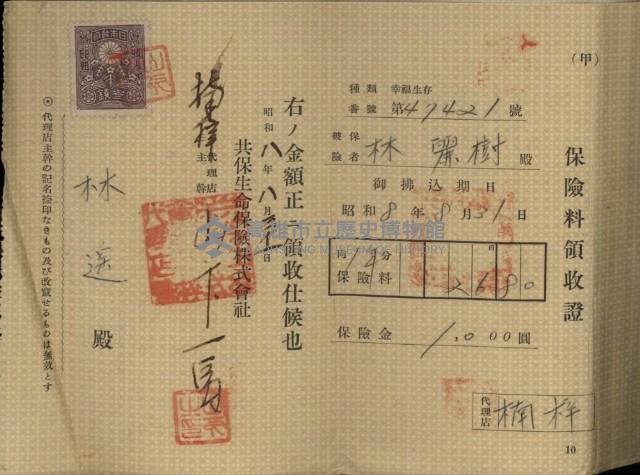 (甲)
保險料領收證
種類 幸福生存
番號 第47421號
被保險者 林 麗樹 殿
御拂込期日
昭和8年8月31日
向 年分
保險料 2680
保險金 1,000圓
代理店 楠梓
10
右ノ金額正ニ領收仕候也
昭和八年八月 日
共保生命保險株式會社
楠梓
代理店主幹 山下一馬
林 遙 殿
◎代理店主幹の記名捺印なきもの及び改竄せるものは無效とす
高雄市立歷史博物館